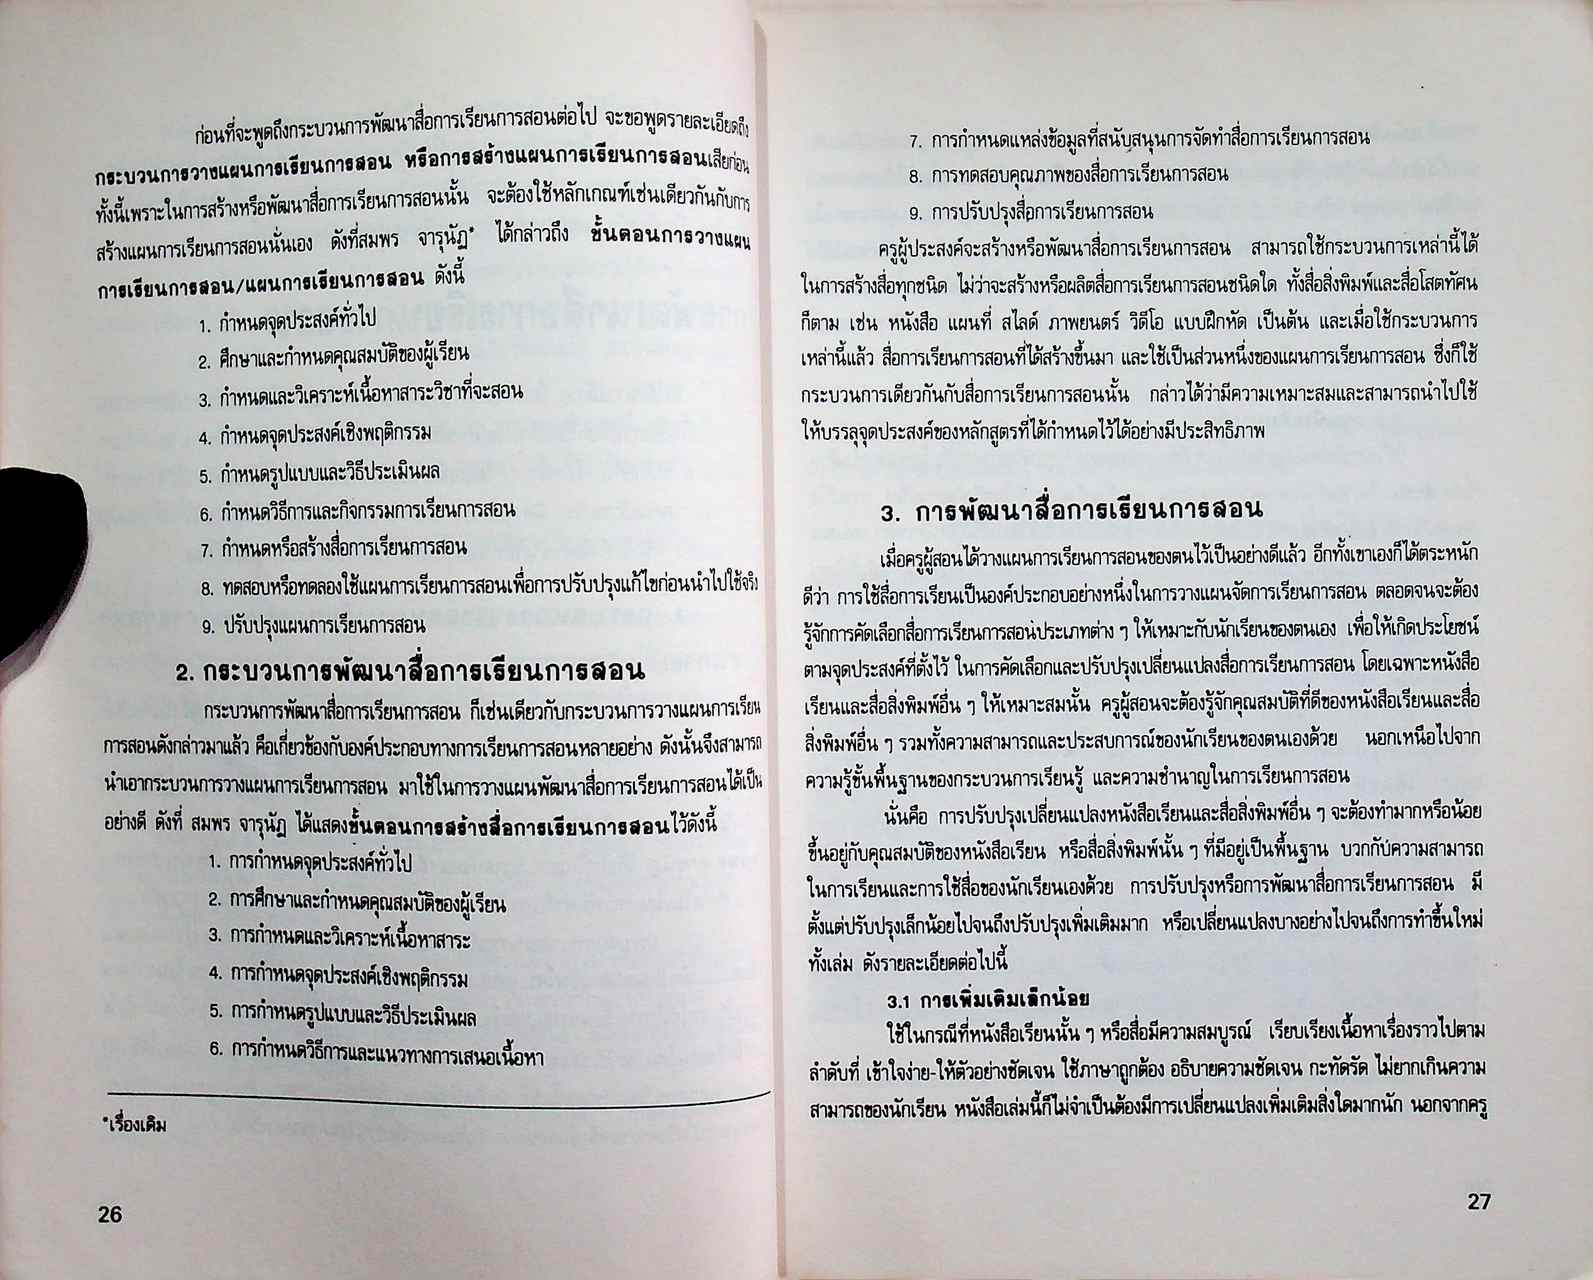 ก่อนที่จะพูดถึงกระบวนการพัฒนาสื่อการเรียนการสอนต่อไป จะขอพูดรายละเอียดถึง
กระบวนการวางแผนการเรียนการสอน หรือการสร้างแผนการเรียนการสอนเสียก่อน
ทั้งนี้เพราะในการสร้างหรือพัฒนาสื่อการเรียนการสอนนั้น จะต้องใช้หลักเกณฑ์เช่นเดียวกันกับการ
สร้างแผนการเรียนการสอนนั่นเอง ดังที่สมพร จารุนัฏ* ได้กล่าวถึง ขั้นตอนการวางแผน
การเรียนการสอน/แผนการเรียนการสอน ดังนี้
1. กำหนดจุดประสงค์ทั่วไป
2. ศึกษาและกำหนดคุณสมบัติของผู้เรียน
3. กำหนดและวิเคราะห์เนื้อหาสาระวิชาที่จะสอน
4. กำหนดจุดประสงค์เชิงพฤติกรรม
5. กำหนดรูปแบบและวิธีประเมินผล
6. กำหนดวิธีการและกิจกรรมการเรียนการสอน
7. กำหนดหรือสร้างสื่อการเรียนการสอน
8. ทดสอบหรือทดลองใช้แผนการเรียนการสอนเพื่อการปรับปรุงแก้ไขก่อนนำไปใช้จริง
9. ปรับปรุงแผนการเรียนการสอน
2. กระบวนการพัฒนาสื่อการเรียนการสอน
กระบวนการพัฒนาสื่อการเรียนการสอน ก็เช่นเดียวกับกระบวนการวางแผนการเรียน
การสอนดังกล่าวมาแล้ว คือเกี่ยวข้องกับองค์ประกอบทางการเรียนการสอนหลายอย่าง ดังนั้นจึงสามารถ
นำเอากระบวนการวางแผนการเรียนการสอน มาใช้ในการวางแผนพัฒนาสื่อการเรียนการสอนได้เป็น
อย่างดี ดังที่ สมพร จารุนัฏ ได้แสดงขั้นตอนการสร้างสื่อการเรียนการสอนไว้ดังนี้
1. การกำหนดจุดประสงค์ทั่วไป
2. การศึกษาและกำหนดคุณสมบัติของผู้เรียน
3. การกำหนดและวิเคราะห์เนื้อหาสาระ
4. การกำหนดจุดประสงค์เชิงพฤติกรรม
5. การกำหนดรูปแบบและวิธีประเมินผล
6. การกำหนดวิธีการและแนวทางการเสนอเนื้อหา
*เรื่องเดิม
26
7. การกำหนดแหล่งข้อมูลที่สนับสนุนการจัดทำสื่อการเรียนการสอน
8. การทดสอบคุณภาพของสื่อการเรียนการสอน
9. การปรับปรุงสื่อการเรียนการสอน
ครูผู้ประสงค์จะสร้างหรือพัฒนาสื่อการเรียนการสอน สามารถใช้กระบวนการเหล่านี้ได้
ในการสร้างสื่อทุกชนิด ไม่ว่าจะสร้างหรือผลิตสื่อการเรียนการสอนชนิดใด ทั้งสื่อสิ่งพิมพ์และสื่อโสตทัศน
ก็ตาม เช่น หนังสือ แผนที่ สไลด์ ภาพยนตร์ วิดีโอ แบบฝึกหัด เป็นต้น และเมื่อใช้กระบวนการ
เหล่านี้แล้ว สื่อการเรียนการสอนที่ได้สร้างขึ้นมา และใช้เป็นส่วนหนึ่งของแผนการเรียนการสอน ซึ่งก็ใช้
กระบวนการเดียวกันกับสื่อการเรียนการสอนนั้น กล่าวได้ว่ามีความเหมาะสมและสามารถนำไปใช้
ให้บรรลุจุดประสงค์ของหลักสูตรที่ได้กำหนดไว้ได้อย่างมีประสิทธิภาพ
3. การพัฒนาสื่อการเรียนการสอน
เมื่อครูผู้สอนได้วางแผนการเรียนการสอนของตนไว้เป็นอย่างดีแล้ว อีกทั้งเขาเองก็ได้ตระหนัก
ดีว่า การใช้สื่อการเรียนเป็นองค์ประกอบอย่างหนึ่งในการวางแผนจัดการเรียนการสอน ตลอดจนจะต้อง
รู้จักการคัดเลือกสื่อการเรียนการสอนประเภทต่าง ๆ ให้เหมาะกับนักเรียนของตนเอง เพื่อให้เกิดประโยชน์
ตามจุดประสงค์ที่ตั้งไว้ ในการคัดเลือกและปรับปรุงเปลี่ยนแปลงสื่อการเรียนการสอน โดยเฉพาะหนังสือ
เรียนและสื่อสิ่งพิมพ์อื่น ๆ ให้เหมาะสมนั้น ครูผู้สอนจะต้องรู้จักคุณสมบัติที่ดีของหนังสือเรียนและสื่อ
สิ่งพิมพ์อื่น ๆ รวมทั้งความสามารถและประสบการณ์ของนักเรียนของตนเองด้วย นอกเหนือไปจาก
ความรู้ขั้นพื้นฐานของกระบวนการเรียนรู้ และความชำนาญในการเรียนการสอน
นั่นคือ การปรับปรุงเปลี่ยนแปลงหนังสือเรียนและสื่อสิ่งพิมพ์อื่น ๆ จะต้องทำมากหรือน้อย
ขึ้นอยู่กับคุณสมบัติของหนังสือเรียน หรือสื่อสิ่งพิมพ์นั้น ๆ ที่มีอยู่เป็นพื้นฐาน บวกกับความสามารถ
ในการเรียนและการใช้สื่อของนักเรียนเองด้วย การปรับปรุงหรือการพัฒนาสื่อการเรียนการสอน มี
ตั้งแต่ปรับปรุงเล็กน้อยไปจนถึงปรับปรุงเพิ่มเติมมาก หรือเปลี่ยนแปลงบางอย่างไปจนถึงการทำขึ้นใหม่
ทั้งเล่ม ดังรายละเอียดต่อไปนี้
3.1 การเพิ่มเติมเล็กน้อย
ใช้ในกรณีที่หนังสือเรียนนั้น ๆ หรือสื่อมีความสมบูรณ์ เรียบเรียงเนื้อหาเรื่องราวไปตาม
ลำดับที่ เข้าใจง่าย-ให้ตัวอย่างชัดเจน ใช้ภาษาถูกต้อง อธิบายความชัดเจน กะทัดรัด ไม่ยากเกินความ
สามารถของนักเรียน หนังสือเล่มนี้ก็ไม่จำเป็นต้องมีการเปลี่ยนแปลงเพิ่มเติมสิ่งใดมากนัก นอกจากครู
27